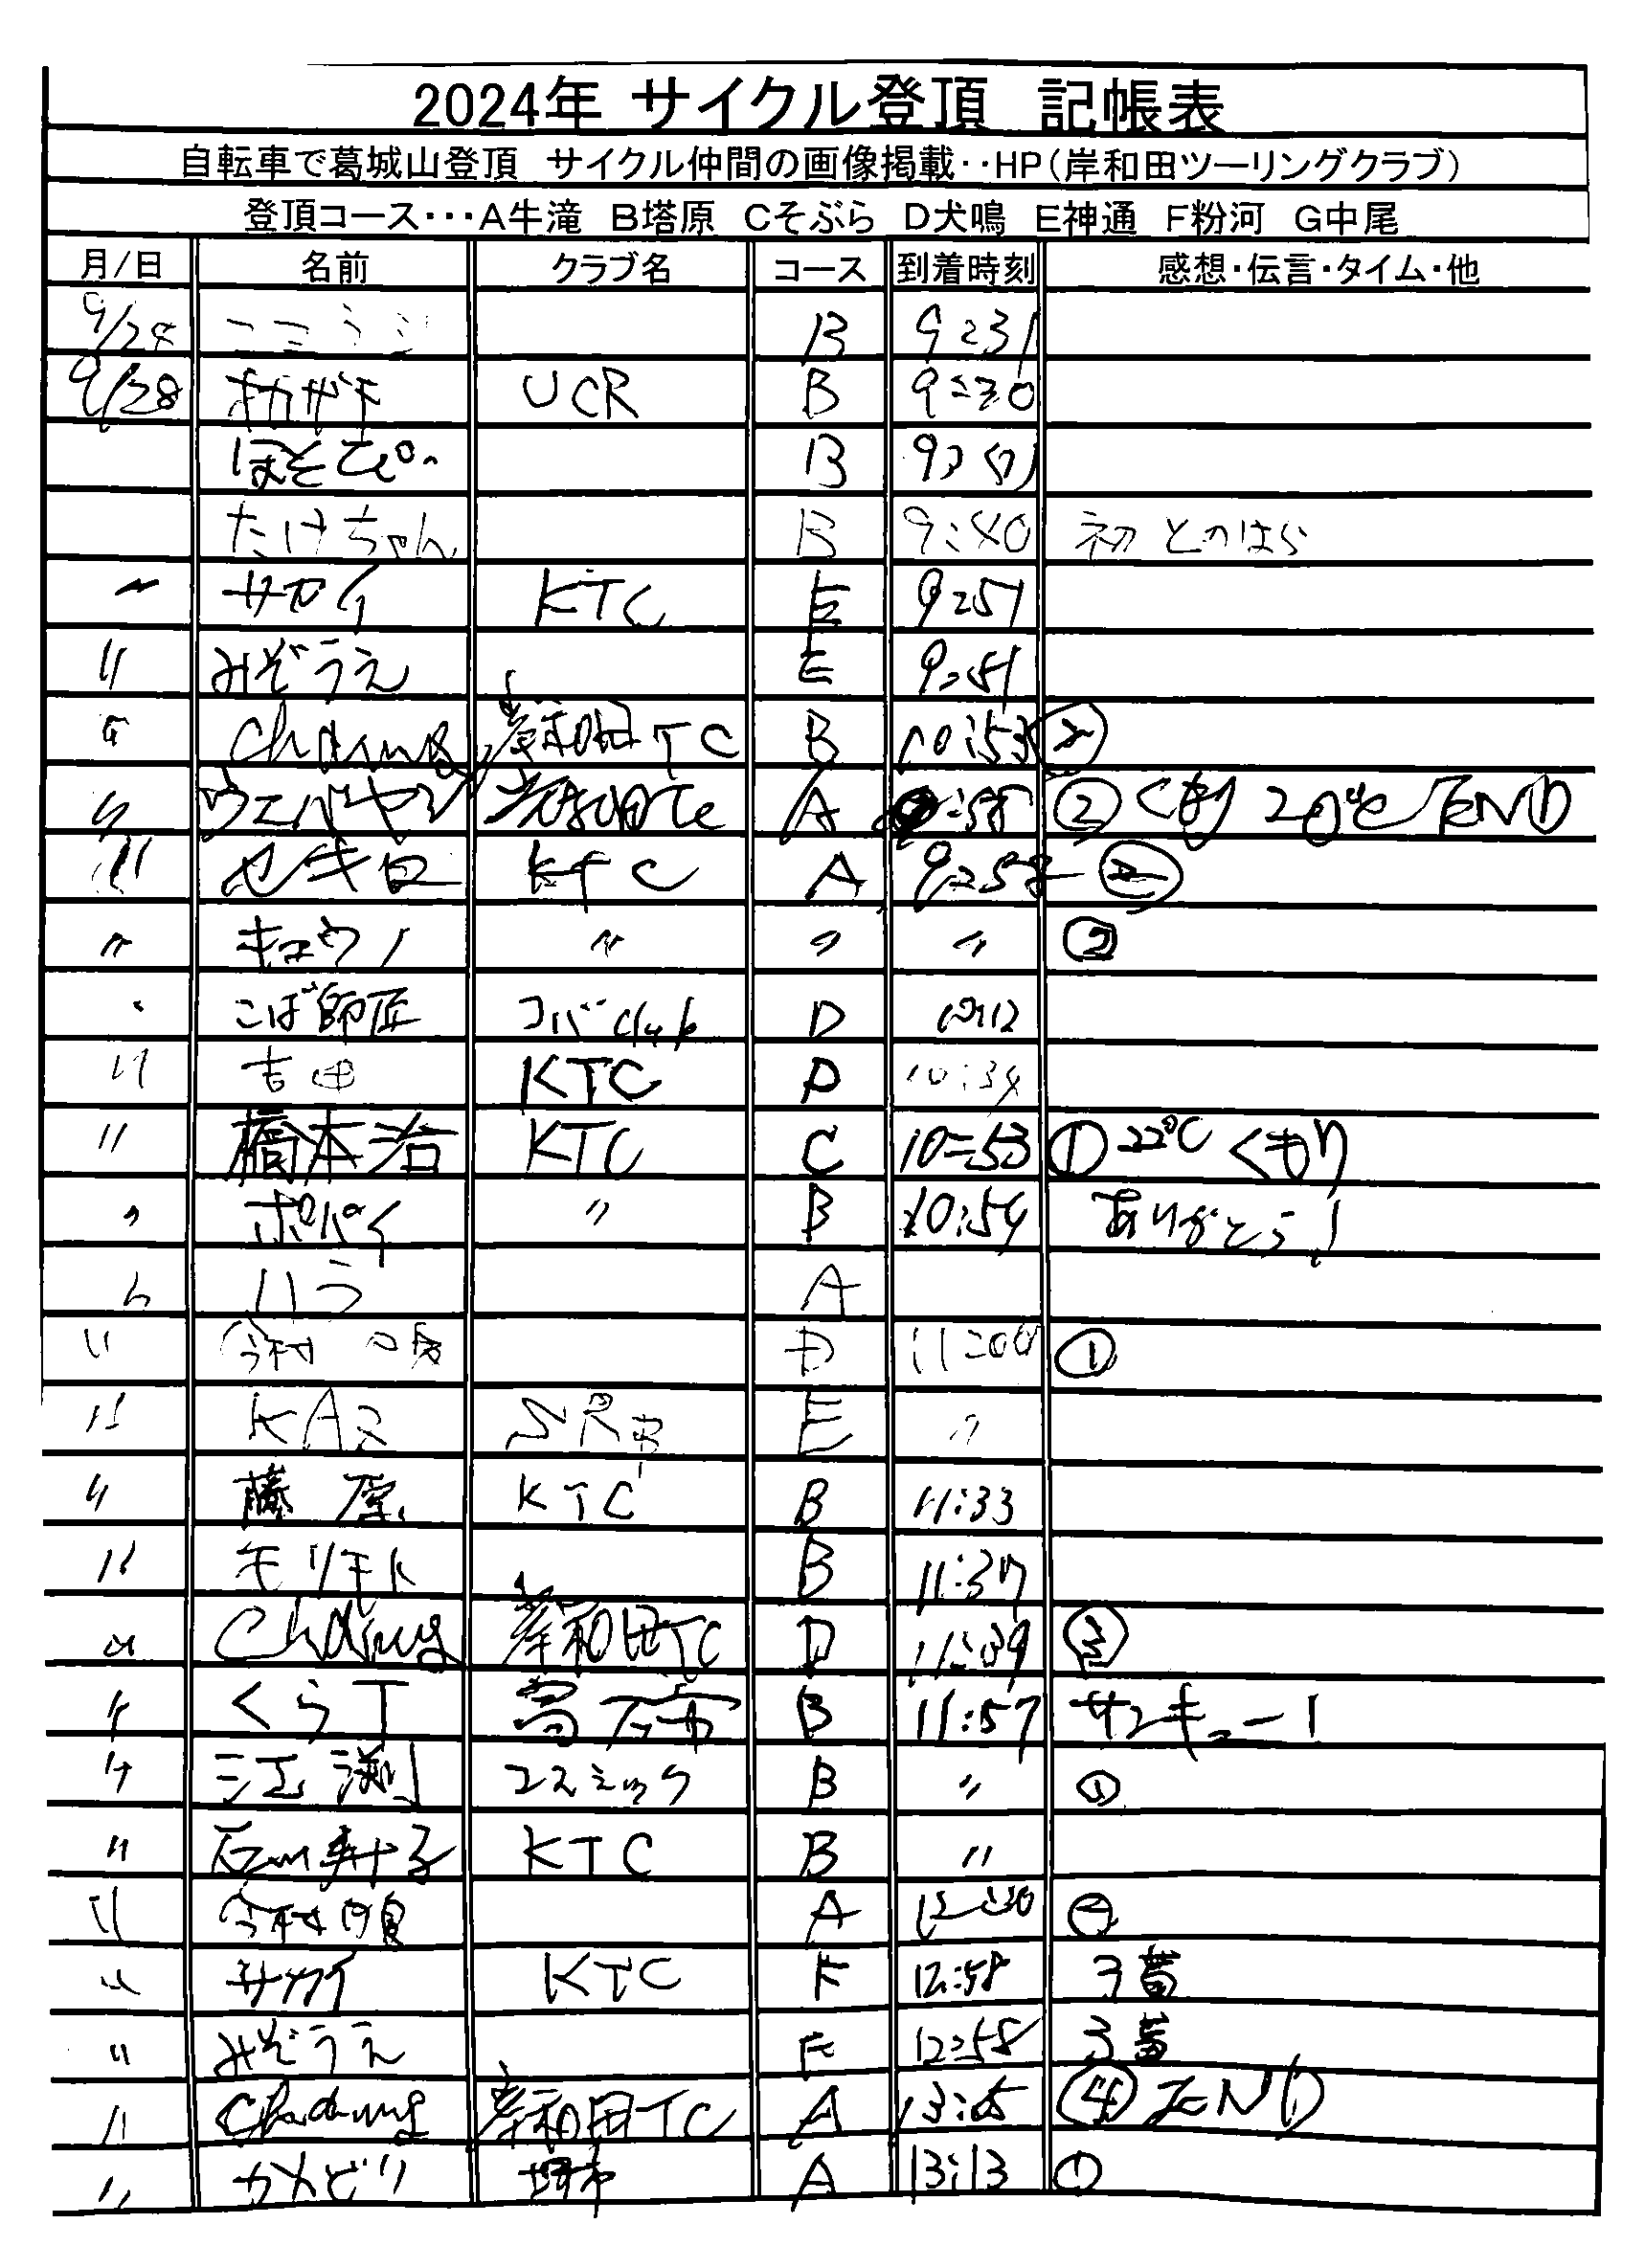 2024年 サイクル登頂 記帳表
自転車で葛城山登頂 サイクル仲間の画像掲載‥HP(岸和田ツーリングクラブ)
登頂コース･･･A牛滝 B塔原 Cそぶら D犬鳴 E神通 F粉河 G中尾
月/日 名前 クラブ名 コース 到着時刻 感想・伝言・タイム・他
9/28 B 9:31
9/28 UCR B 9:30
B
たけちゃん B 9:40 初 とのはら
〃 サカイ KTC E 9:51
〃 みぞうえ E 9:51
〃 岸和田TC B 10:53 ②
〃 A ② くもり 20℃ END
〃 セキロ KTC A ②
〃 キュウノ 〃 〃 〃 ②
こば師匠 コバclub D 10:12
〃 吉田 KTC D 10:34
〃 橋本治 KTC C 10:53 ① 22℃ くもり
〃 ポパイ 〃 B 10:54 ありがとう!
〃 ハラ A
〃 今村 D 11:00 ①
〃 E 〃
〃 藤原 KTC B 11:33
〃 モリモト B 11:37
〃 岸和田TC D 11:39 ③
〃 くらT 高石市 B 11:57 サンキュー!
〃 江渕 コスミック B 〃 ①
〃 KTC B 〃
〃 今村 A ②
〃 サカイ KTC F 12:58 3蓄
〃 みぞうえ F 12:58 3蓄
〃 岸和田TC A ④ END
〃 かめどり 堺市 A 13:13 ①